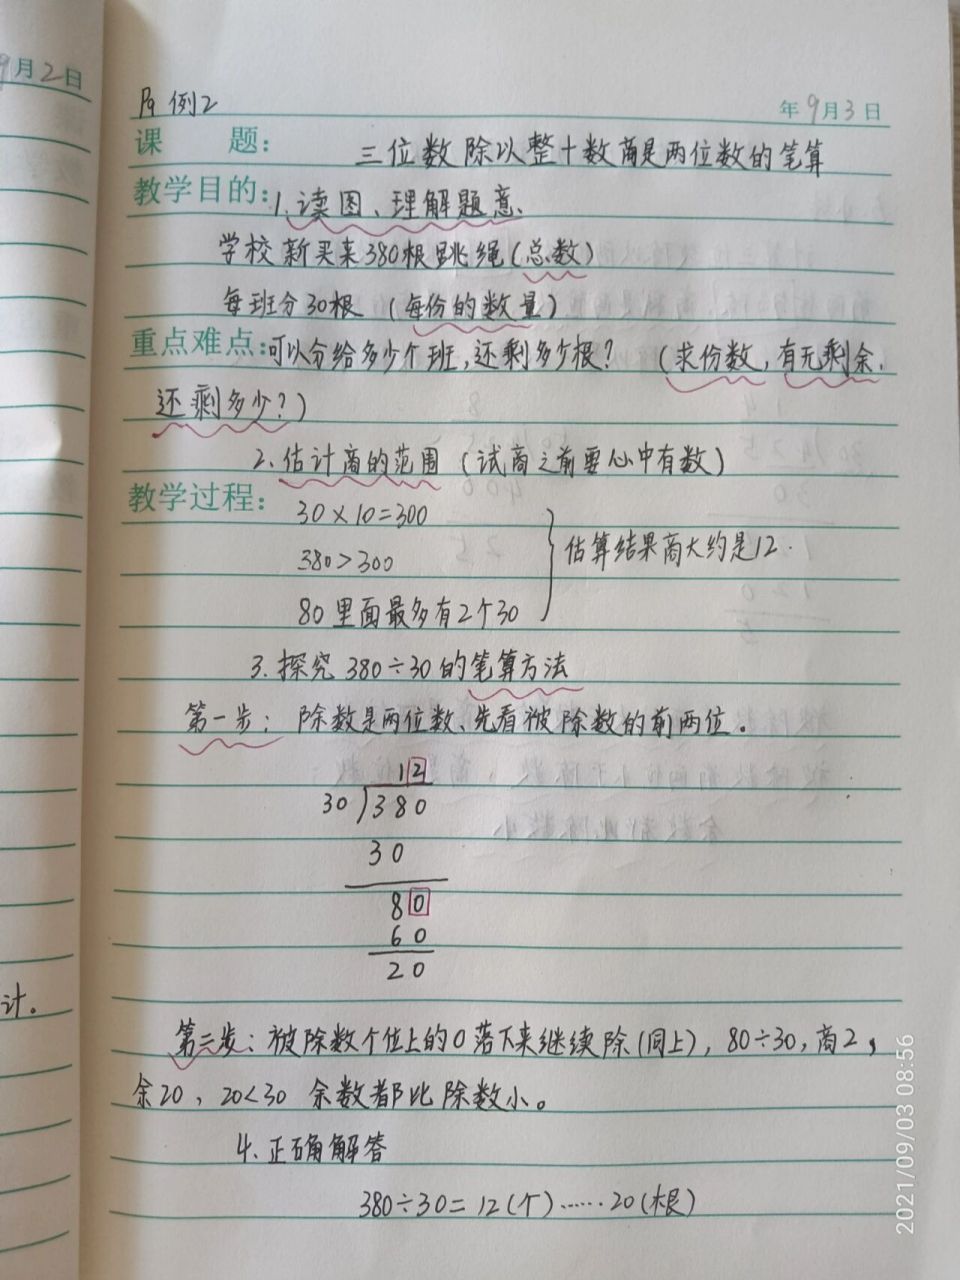 9月2日
P9 例2
年9月3日
课 题: 三位数除以整十数商是两位数的笔算
教学目的: 1.读图、理解题意.
学校新买来380根跳绳(总数)
每班分30根 (每份的数量)
重点难点: 可以分给多少个班,还剩多少根? (求份数,有无剩余,
还剩多少?)
2、估计商的范围 (试商之前要心中有数)
教学过程: 30×10=300
380>300
估算结果商大约是12.
80里面最多有2个30
3.探究380÷30的笔算方法
第一步: 除数是两位数、先看被除数的前两位。
12
30 380
30
80
60
20
计。
第二步:被除数个位上的0落下来继续除(同上), 80÷30,商2,
余20, 20<30 余数都比除数小。
4.正确解答
380÷30=12(个)……20(根)
2021/09/03 08:56